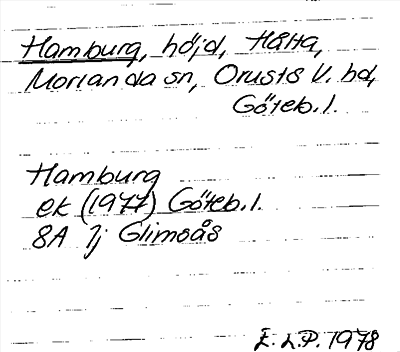 Hamburg, höjd, Hålta,
Morlanda sn, Orusts V. hd,
Göteb. l.
Hamburg
ek (1977) Göteb. l.
8A 1j Glimsås
E. L.P. 1978